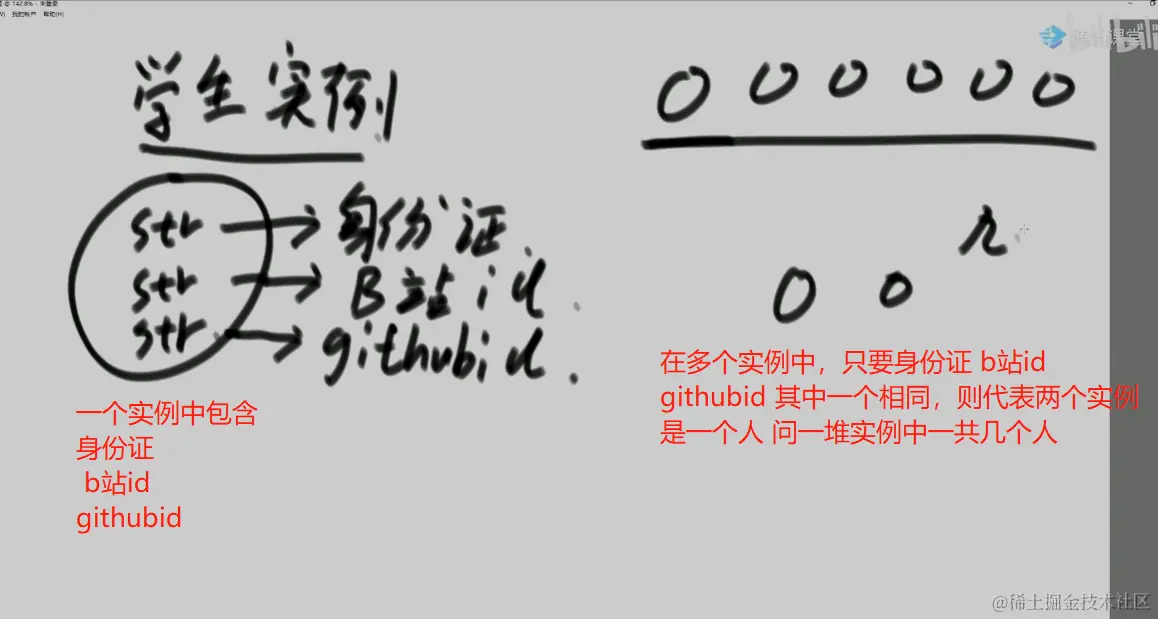 学生实例
str → 身份证
str → B站id.
str → githubid.
一个实例中包含
身份证
b站id
githubid
0 0 0 0 0 0
0 0
在多个实例中，只要身份证 b站id
githubid 其中一个相同，则代表两个实例
是一个人 问一堆实例中一共几个人
@稀土掘金技术社区